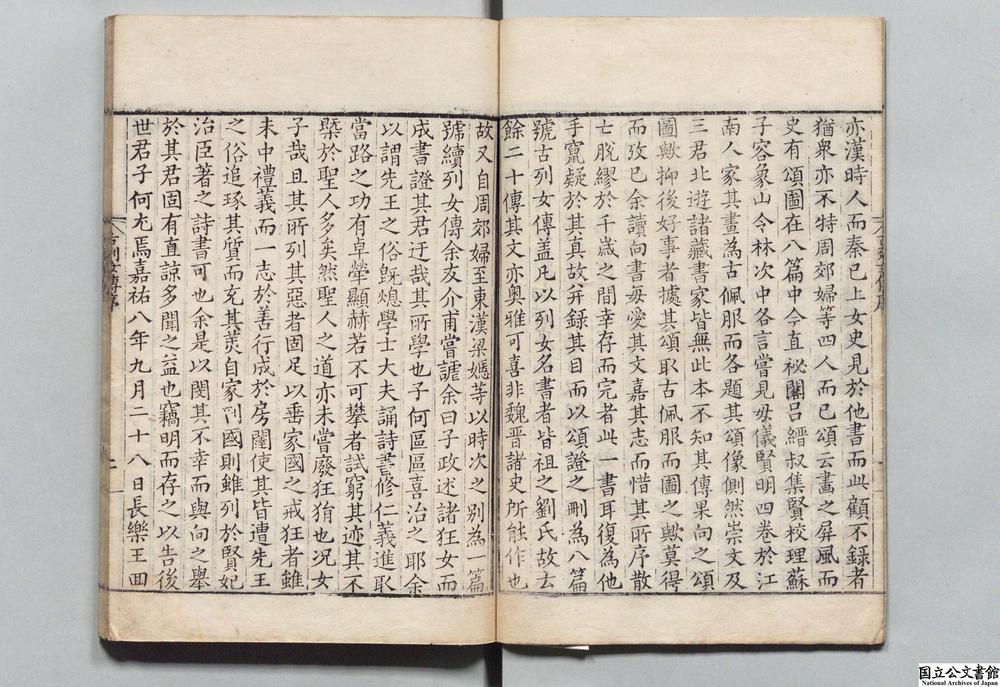 亦漢時人而秦已上女史見於他書而此顧不錄者
猶衆亦不特周郊婦等四人而已頌云畫之屏風而
史有頌圖在八篇中今直祕閣呂縉叔集賢校理蘇
子容象山令林次中各言嘗見母儀賢明四卷於江
南人家其畫為古佩服而各題其頌像側然崇文及
三君北遊諸藏書家皆無此本不知其傳果向之頌
圖歟抑後好事者據其頌取古佩服而圖之歟莫得
而攷已余讀向書每愛其文嘉其志而惜其所序散
亡脫繆於千歲之間幸存而完者此一書耳復為他
手竄疑於其真故并錄其目而以頌證之刪為八篇
號古列女傳蓋凡以列女名書者皆祖之劉氏故云
餘二十傳其文亦奧雅可喜非魏晉諸史所能作也
故又自周郊婦至東漢梁嫕等以時次之別為一篇
號續列女傳余友介甫嘗謔余曰子政述諸狂女而
成書證其君迂哉其所學也子何區區喜治之耶余
以謂先王之俗旣熄學士大夫誦詩書修仁義進取
當路之功有卓犖顯赫若不可攀者試窮其迹其不
槩於聖人多矣然聖人之道亦未嘗廢狂狷也况女
子哉且其所列其惡者固足以垂家國之戒狂者雖
未中禮義而一志於善行成於房闥使其皆遭先王
之俗追琢其質而充其美自家刑國則雖列於賢妃
治臣著之詩書可也余是以閔其不幸而與向之舉
於其君固有直諒多聞之益也竊明而存之以告後
世君子何尤焉嘉祐八年九月二十八日長樂王回
古列女傳序
国立公文書館
National Archives of Japan